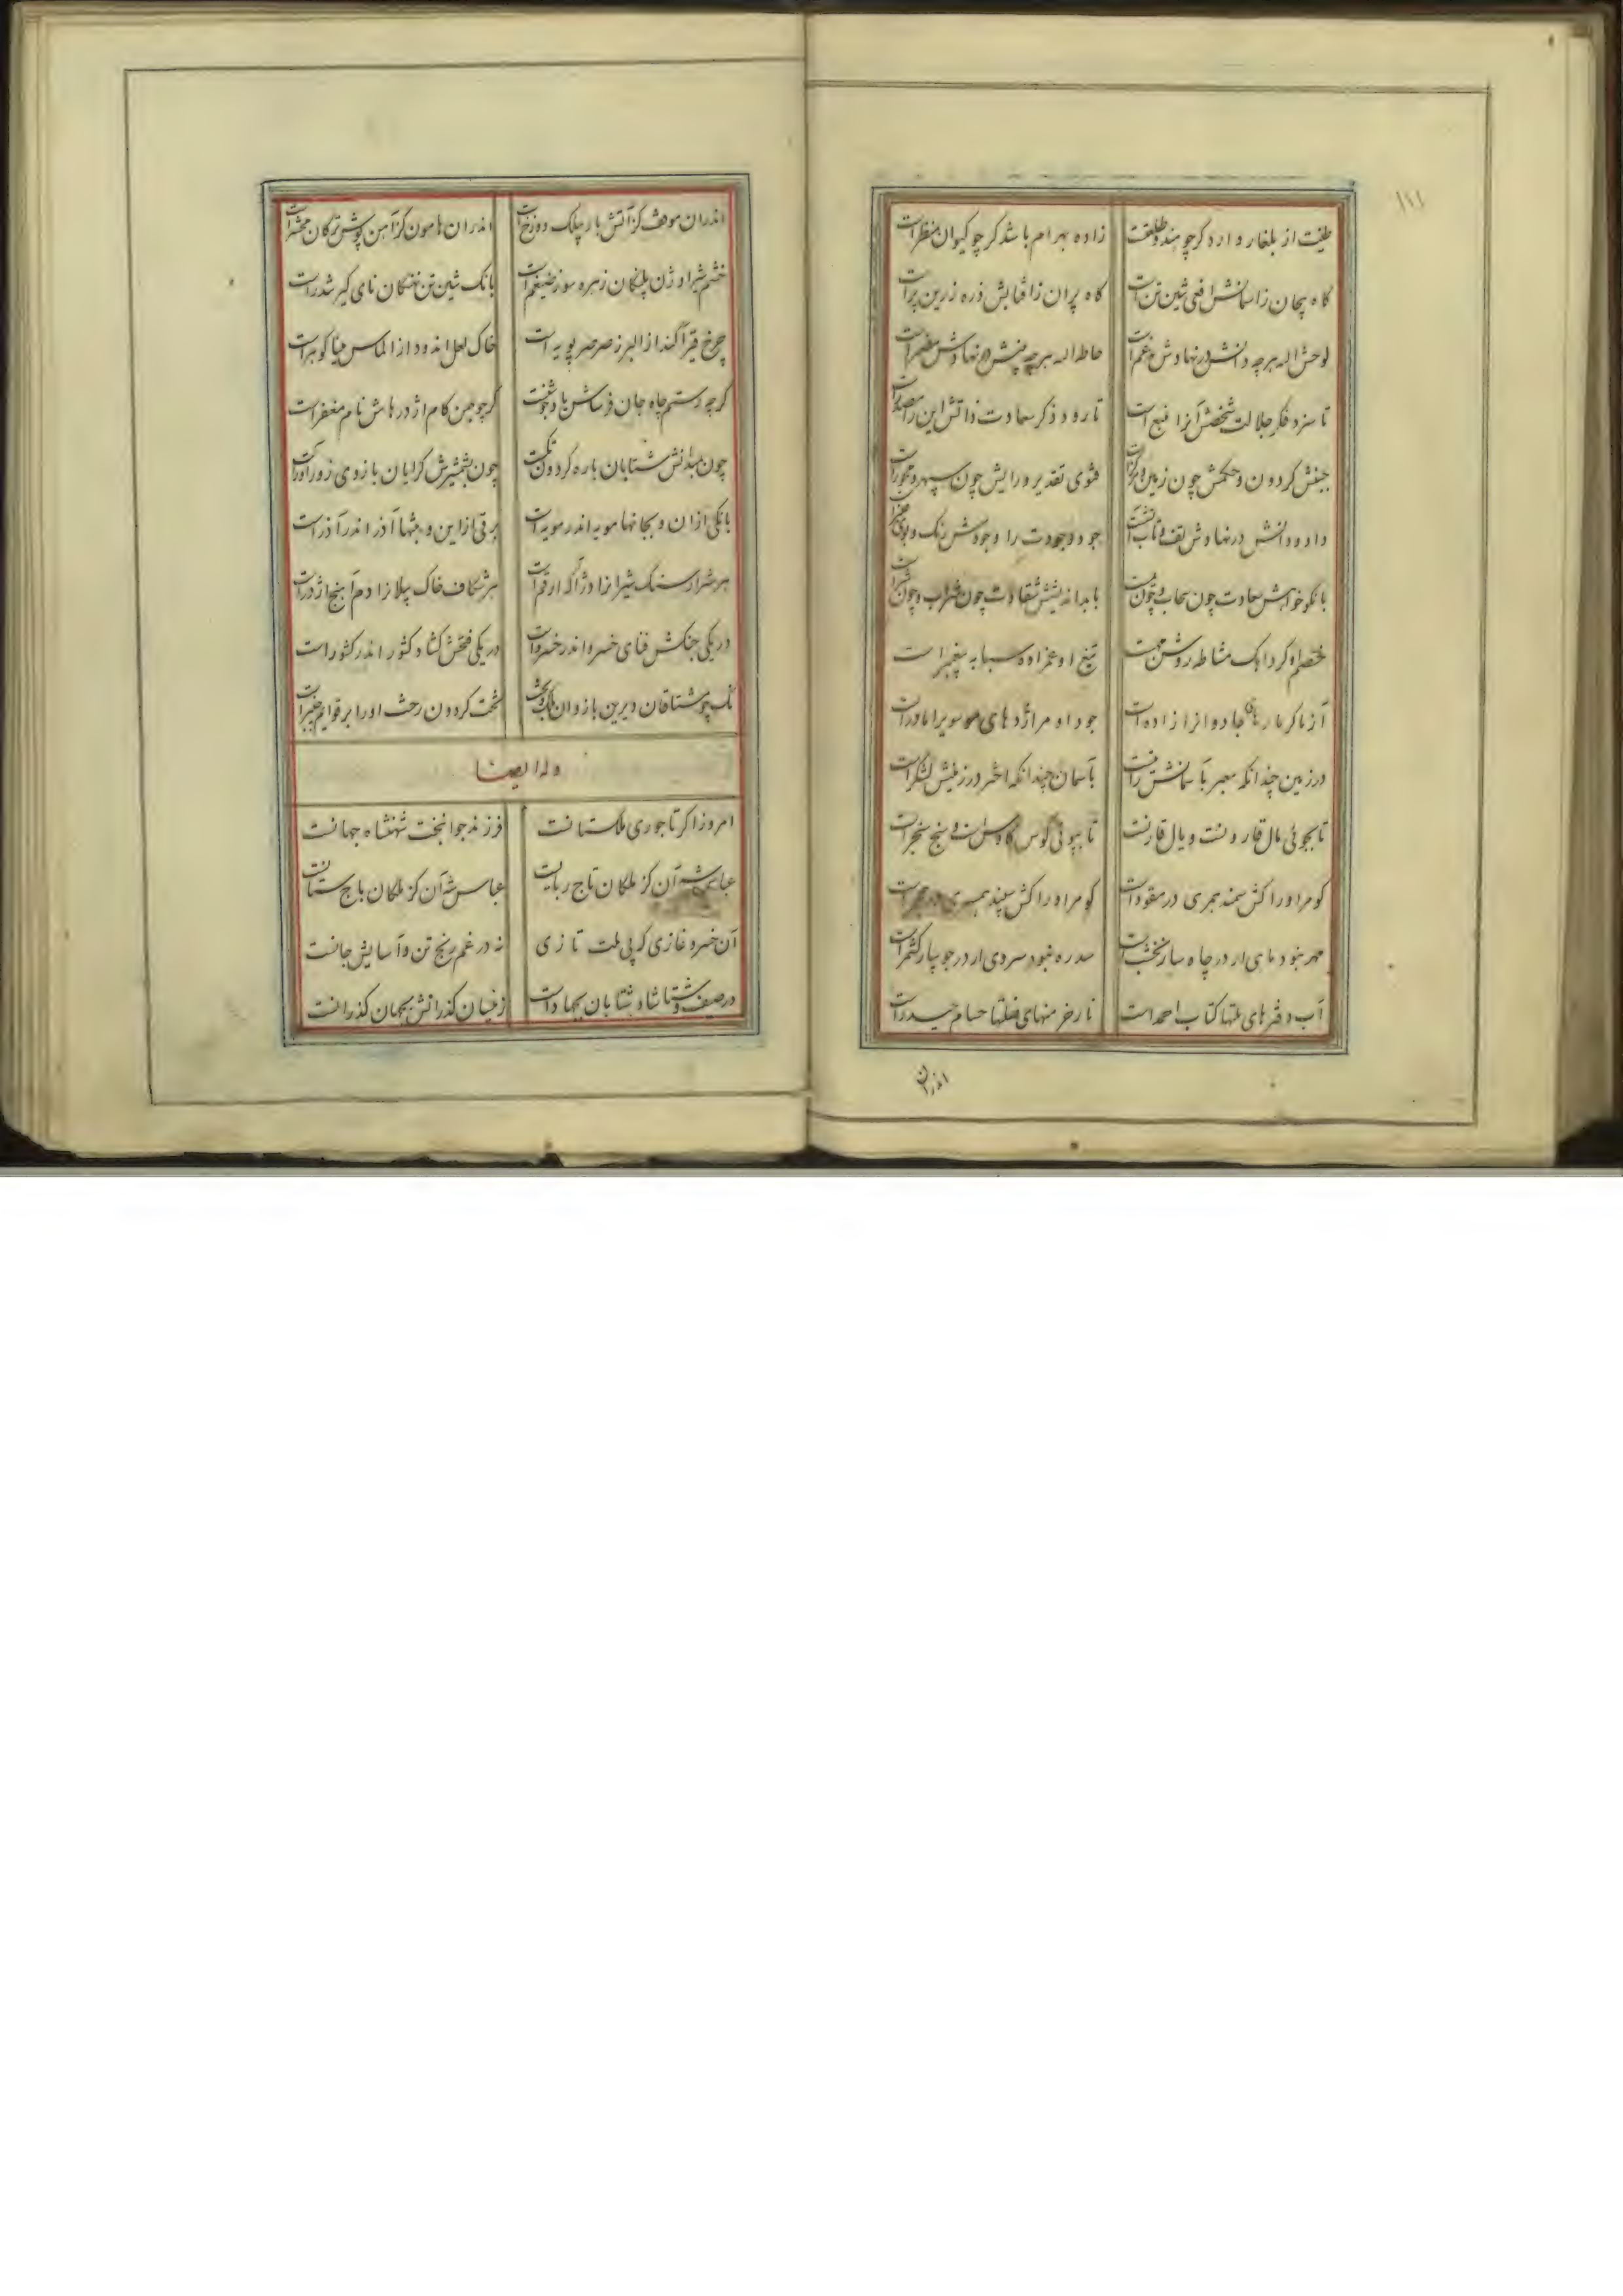 ۱۱۱
طینت از بلغار دارد کرچو هند و طلعت زاده بهرام باشد کرچو کیوان منظر است
کاه پیچان زاسمانش افعی تن است کاه پران زافتابش ذره زرین پر است
لوحش اله هر چه دانش در نهادش مدغم است حاطه اله هر چه بینش در نهادش مضمر است
تا سزد فکر جلالت شخص آنرا منبع است تا رود ذکر سعادت ذاتش این را مصدر است
جیش کردون و حکمش چون زمین و مرکز است فتوی تقدیر و رایش چون سپهر و محور است
داد و دانش در نهادش تف و تاب جود و جودت را وجودش رنک و بوی
با نکو خواهش سعادت چون سحاب و چون با بداندیشش شقاوت چون شراب و چون
خصم او کرد مشاطه روشن تیغ او عزاده سبابه پیغمبر است
آزما کر مارهای جادو انرا زاده است جود او مر اژدهای موسویرا مادر است
در زمین چندانکه معبر باسمانش بآسمان چندانکه اختر در زمینش لشکر است
تا بجوئی مال قارونست و یال قارنست تا بپوئی کوس کاوس است و سنج سنجر است
کو مر او را کش سمند همسری در مقود است کو مر او را کش سپند همسری در مجمر است
مهر نبود ماهی ار در چاه سار نخشب است سدره نبود سروی ار در جویبار کشمر است
آب دفترهای ملتها کتاب احمد است نار خرمنهای فتنتها حسام حیدر است
اندران
اندران موقف کز آتش بار چالک دوزخ است اندران هامون کز آهن پوش ترکان محشر است
خشم شیر اوژن پلنگان زهره سوز ضیغم است بانک تنین تن نهنکان نای کیر تندر است
چرخ قیر آکند از البرز صرصر پویه است خاک لعل اندود از الماس مینا کوهر است
کرچه رستم چاه جان فرسایش کرچو بهمن کام اژدرهاش نام مغفر است
چون بمیدانش شتابان باره کردون تک است چون بشمشیرش کرایان بازوی زور آور است
بانکی از ان و بجانها مویه اندر مویه است برقی از این و بتنها آذر اندر آذر است
هر شرار سنک شیرانرا ارقم است هر شکاف خاک پیلانرا دم آهنج اژدر است
در یکی جنکش فنای خسرو اندر خسرو است در یکی فتحش کشاد کشور اندر کشور است
مشتاقان دیرین بازوان تخت کردون رخش او را بر قوایم
وله ایضا
امروز اکر تاجوری ملکستانست فرزند جوانبخت شهنشاه جهانست
عباس شه آن کز ملکان تاج ربایست عباس شه آن کز ملکان باج ستانست
آن خسرو غازی که پی ملت تازی نه در غم رنج تن و آسایش جانست
در صیف و شتا شاد شتابان بجهاد است زینسان کذرانش بجهان کذرانست